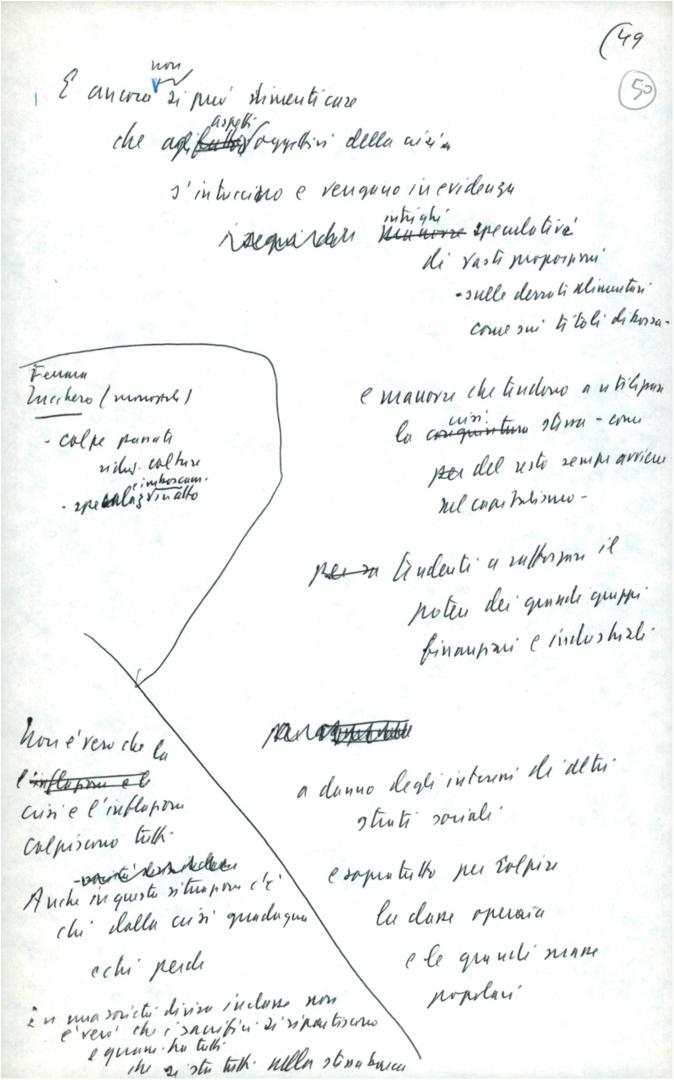 (49
50
non
E ancora si può dimenticare
aspetti
che agli fattori oggettivi della crisi
s'intrecciano e vengono in evidenza
intrighi
manovre speculativi
di vaste proporzioni
- sulle derrate alimentari
come sui titoli di borsa -
e manovre che tendono a utilizzare
crisi
la congiuntura stessa - come
per del resto sempre avviene
nel capitalismo -
tendenti a rafforzare il
potere dei grandi gruppi
finanziari e industriali
a danno degli interessi di altri
strati sociali
e sopratutto per colpire
la classe operaia
e le grandi masse
popolari
Ferrara
Zucchero (monopoli)
- colpe passati
riduz. colture
e imboscam.
- speculaz. in atto
Non è vero che la
l'inflazione e la
crisi e l'inflazione
colpiscono tutti.
Anche in questa situazione c'è
chi dalla crisi guadagna
e chi perde
in una società divisa in classe non
è vero che i sacrifici si ripartiscono
e quasi tra tutti
che si sta tutti nella stessa barca